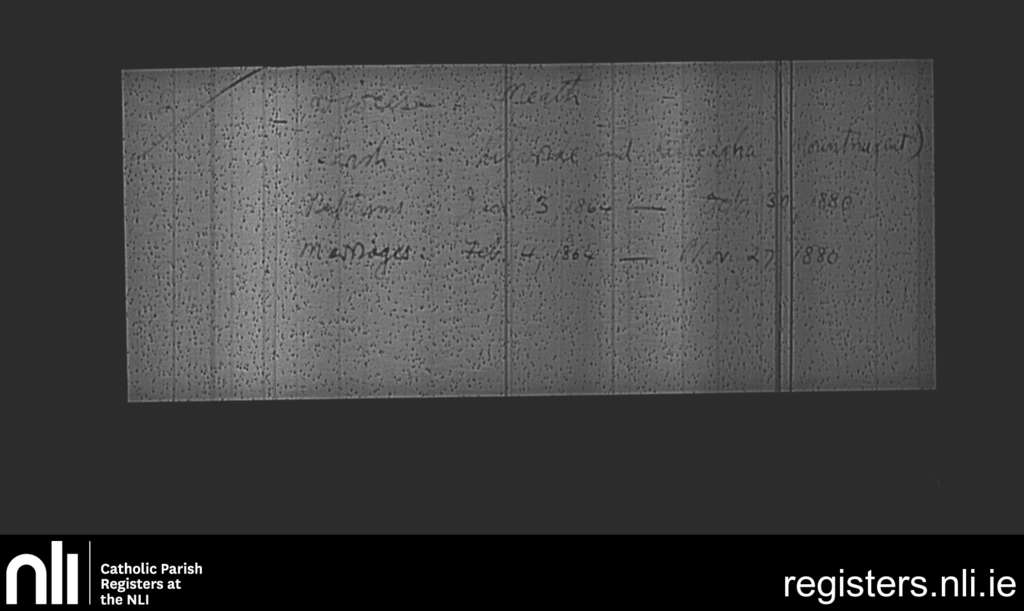 Diocese : Meath
Parish : and Mountnugent)
Baptisms : 1864 — 30, 1880
Marriages : Feb. 4, 1864 — Nov. 27, 1880
nli
Catholic Parish
Registers at
the NLI
registers.nli.ie